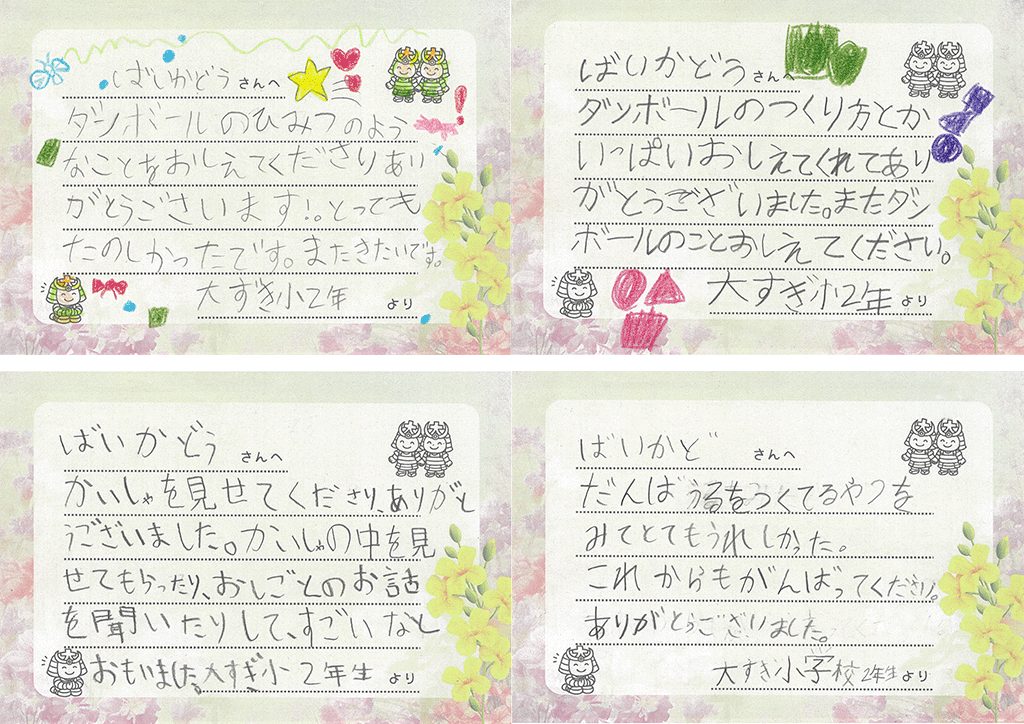 ばいかどうさんへ
ダンボールのひみつのよう
なことをおしえてくださりあり
がとうございます!。とっても
たのしかったです。またきたいです。
大すぎ小2年より
ばいかどうさんへ
ダンボールのつくり方とか
いっぱいおしえてくれてあり
がとうございました。またダン
ボールのことおしえてください。
大すぎ小2年より
ばいかどうさんへ
かいしゃを見せてくださり、ありがと
うございました。かいしゃの中を見
せてもらったり、おしごとのお話
を聞いたりして、すごいなと
おもいました。大すぎ小2年生より
ばいかどさんへ
だんばうるをつくてるやつを
みてとてもうれしかった。
これからもがんばってください。
ありがとうございました。
大すぎ小学校2年生より